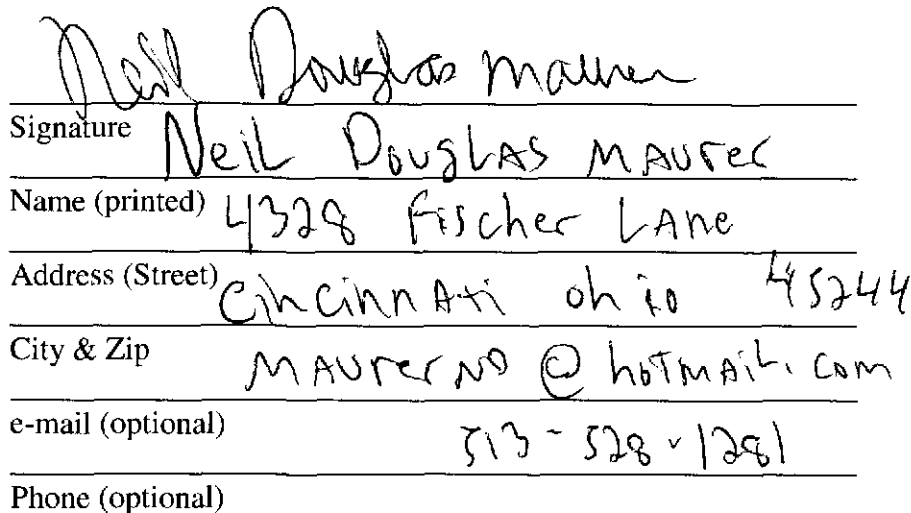 Neil Douglas Maurer
Signature Neil Douglas Maurer
Name (printed) 4328 Fischer Lane
Address (Street) Cincinnati ohio 45244
City & Zip MaurerND@hotmail.com
e-mail (optional) 513-528-1281
Phone (optional)